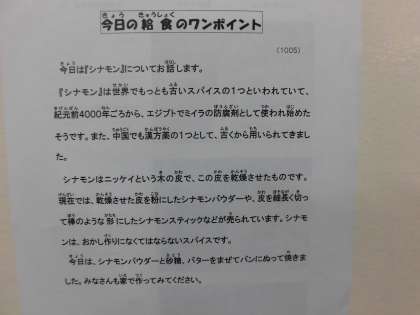 今日の給食のワンポイント
(1005)
今日は『シナモン』についてお話します。
『シナモン』は世界でもっとも古いスパイスの1つといわれていて、
紀元前4000年ごろから、エジプトでミイラの防腐剤として使われ始めた
そうです。また、中国でも漢方薬の1つとして、古くから用いられてきまし
た。
シナモンはニッケイという木の皮で、この皮を乾燥させたものです。
現在では、乾燥させた皮を粉にしたシナモンパウダーや、皮を細長く切っ
て棒のような形にしたシナモンスティックなどが売られています。シナモ
ンは、おかし作りになくてはならないスパイスです。
今日は、シナモンパウダーと砂糖、バターをまぜてパンにぬって焼きま
した。みなさんも家で作ってみてください。